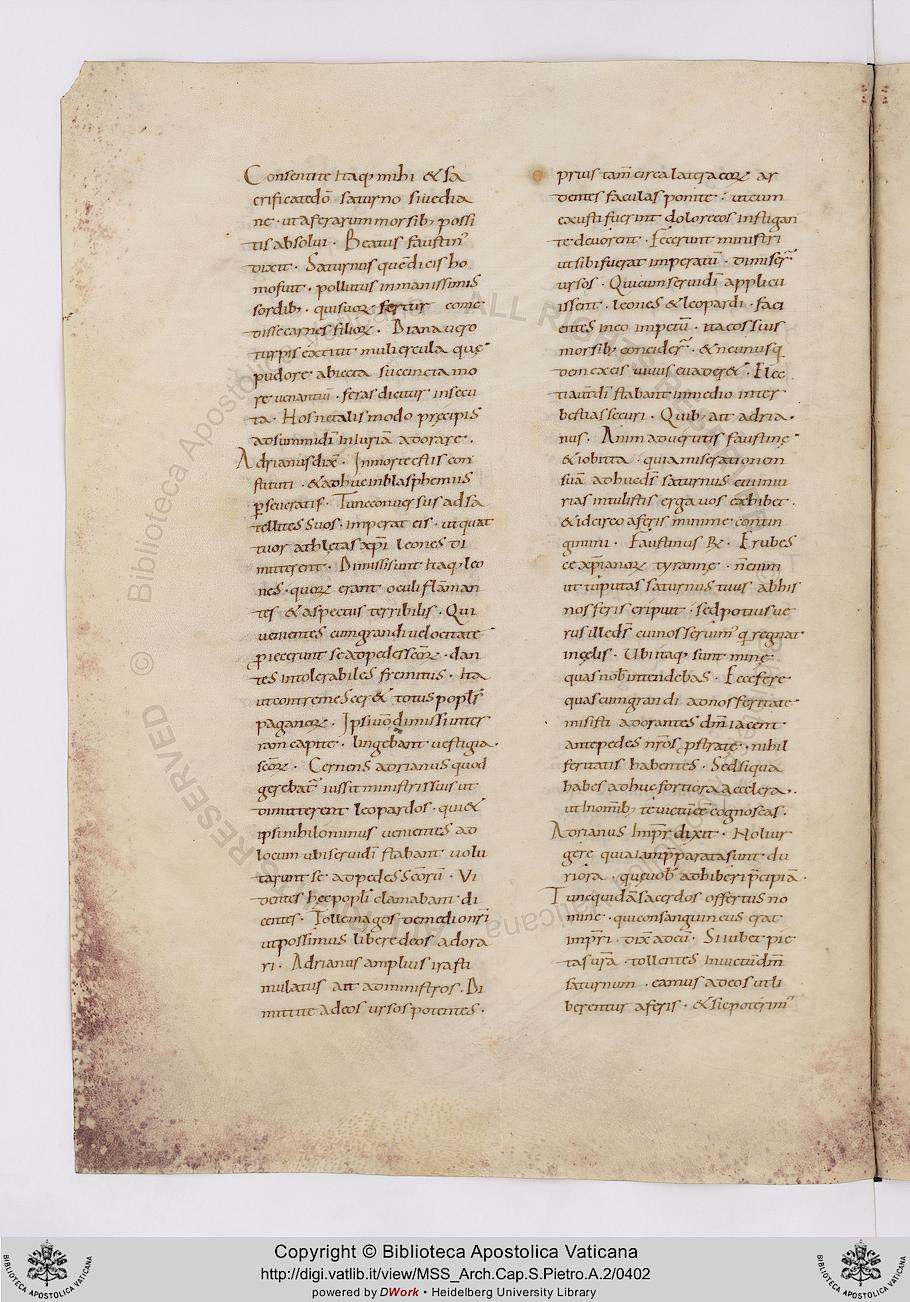 Consentite itaq; mihi & sa
crificate do̅ saturno siue dia
ne · ut a ferarum morsib; possi
tis absolui · Beatus faustin᾽
dixit · Saturnus que̅ dicis ho
mo fuit · pollutus inmanissimis
sordib; · qui suoꝝ fertur come
disse carnes filioꝝ · Diana uero
turpis extitit muliercula quę
pudore abiecta succincta mo
re uenantiu̅ · feras dicitur insecu
ta · Hos ne talis modo pręcipis
ad summi di̅ iniuria̅ adorare ·
Adrianus dix̅ · In morte estis con
stituti · & adhuc in blasphemiis
ꝑseueratis · Tunc conuersus ad sa
tellites suos · imperat eis · ut quat
tuor athletas xp̅i leones di
mitterent · Dimissi sunt itaq; leo
nes · quoꝝ erant oculi fla̅man
tes & aspectus terribilis · Qui
uenientes cum grandi uelocitate
ꝓiecerunt se ad pedes sc̅oꝝ · dan
tes intolerabiles fremitus · Ita
ut contremescer& totus popl̅s
paganoꝝ · Ipsi uo̅ dimissi inter
ram capite · lingebant uestigia
sc̅oꝝ · Cernens adrianus quod
gerebat᾽ iussit ministris suis ut
dimitterent leopardos · qui &
ipsi nihilominus uenientes ad
locum ubi serui di̅ stabant uolu
tarunt se ad pedes sc̅oru̅ · Vi
dentes hęc popl̅i clamabant di
centes · Tolle magos de medio nr̅i
ut possimus libere deos adora
ri · Adrianus amplius ira sti
mulatus ait ad ministros · Di
mittite ad eos ursos potentes ·
prius tam̅ circa latera eoꝝ ar
dentes faculas ponite · ut cum
exusti fuerint dolore eos instigan
te deuorent · Fecerunt ministri
ut sibi fuerat imperatu̅ · dimiser̅᾽
ursos · Qui cum serui di̅ applicu
issent · leones & leopardi · faci
entes in eos impetu̅ · ita eos suis
morsib; concider̅᾽ · & ne unusq
dem ex eis uiuus euader& · Elec
ti aut̅ di̅ stabant in medio inter
bestias securi · Quib; ait adria
nus · Animaduertitis faustine
& iobitta · quia miseratione̅
sua̅ adhuc ds̅ saturnus cui iniu
rias intulistis erga uos exhibet ·
& idcirco a feris minime contin
gimini · Faustinus R̷ · Erubes
ce xp̅ianoꝝ tyranne · n̅ enim
ut tu putas saturnus tuus ab his
nos feris eripuit · sed potius ue
rus ille ds̅ cui nos seruim᾽ q̅ regnat
in cęlis · Vbi itaq; sunt minę
quas nob̅ intendebas · Ecce ferę
quas cum grandi ad nos feritate
misisti adorantes dn̅m iacent
ante pedes nr̅os ꝓstratę · nihil
feritatis habentes · Sed si qua
habes adhuc fortiora accelera ·
ut in om̅ib; te uictu̅ee cognoscas ·
Adrianus imp̅r dixit · Noli ur
gere quia iam p̅parata sunt du
riora · quę uob̅ adhiberi p̅cipia̅ ·
Tunc quida̅ sacerdos offertus no
mine · qui consanguineus erat
imp̅ri · dix̅ ad eu̅ · Si iubet pie
tas ur̅a · tollentes inuictu̅ dm̅
saturnum · eamus ad eos ut li
berentur a feris · & sic poterim᾽
Copyright © Biblioteca Apostolica Vaticana
http://digi.vatlib.it/view/MSS_Arch.Cap.S.Pietro.A.2/0402
powered by DWork • Heidelberg University Library